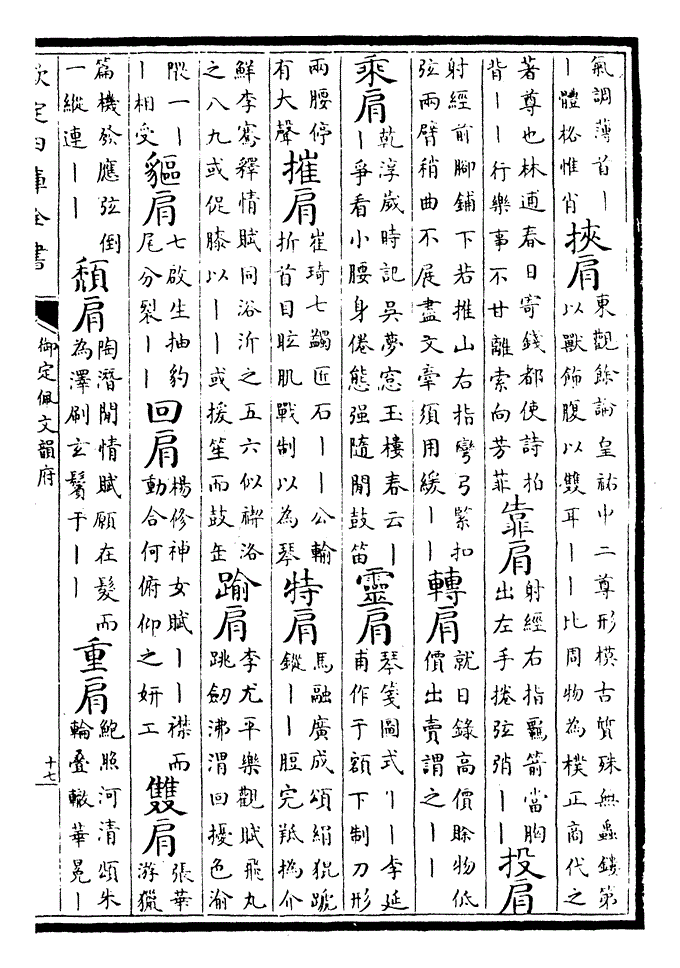 氣調薄首丨
丨體格惟肖
挾肩
東觀餘論皇祐中二尊形模古質殊無蟲鏤第
以獸飾腹以雙耳丨丨比周物為樸正商代之
著尊也林逋春日寄錢都使詩拍
背丨丨行樂事不甘離索向芳菲
靠肩
射經右指羈箭當胸
出左手捲弦弰丨丨
投肩
射經前腳鋪下若推山右指彎弓緊扣
弦兩臂稍曲不展盡文牽須用緩丨丨
轉肩
就日錄高價賒物低
價出賣謂之丨丨
乘肩
乾淳歲時記吳夢窓玉樓春云丨
丨爭看小腰身倦態强隨閒鼓笛
靈肩
琴箋圖式丨丨李延
甫作于額下制刀形
兩腰停
有大聲
摧肩
崔琦七蠲匠石丨丨公輸
折首目眩肌戰制以為琴
特肩
馬融廣成頌絹猑蹏
鏦丨丨脰完羝撝介
鮮李騫釋情賦同浴沂之五六似禊洛
之八九或促膝以丨丨或援笙而鼓缶
踰肩
李尤平樂觀賦飛丸
跳劒沸渭回擾色渝
隈一丨
丨相受
貙肩
七啟生抽豹
尾分裂丨丨
回肩
楊修神女賦丨丨襟而
動合何俯仰之妍工
雙肩
張華
游獵
篇機發應弦倒
一縱連丨丨
頹肩
陶潛閒情賦願在髮而
為澤刷玄鬢于丨丨
重肩
鮑照河清頌朱
輪疊轍華冕丨
欽定四庫全書
御定佩文韻府
十七